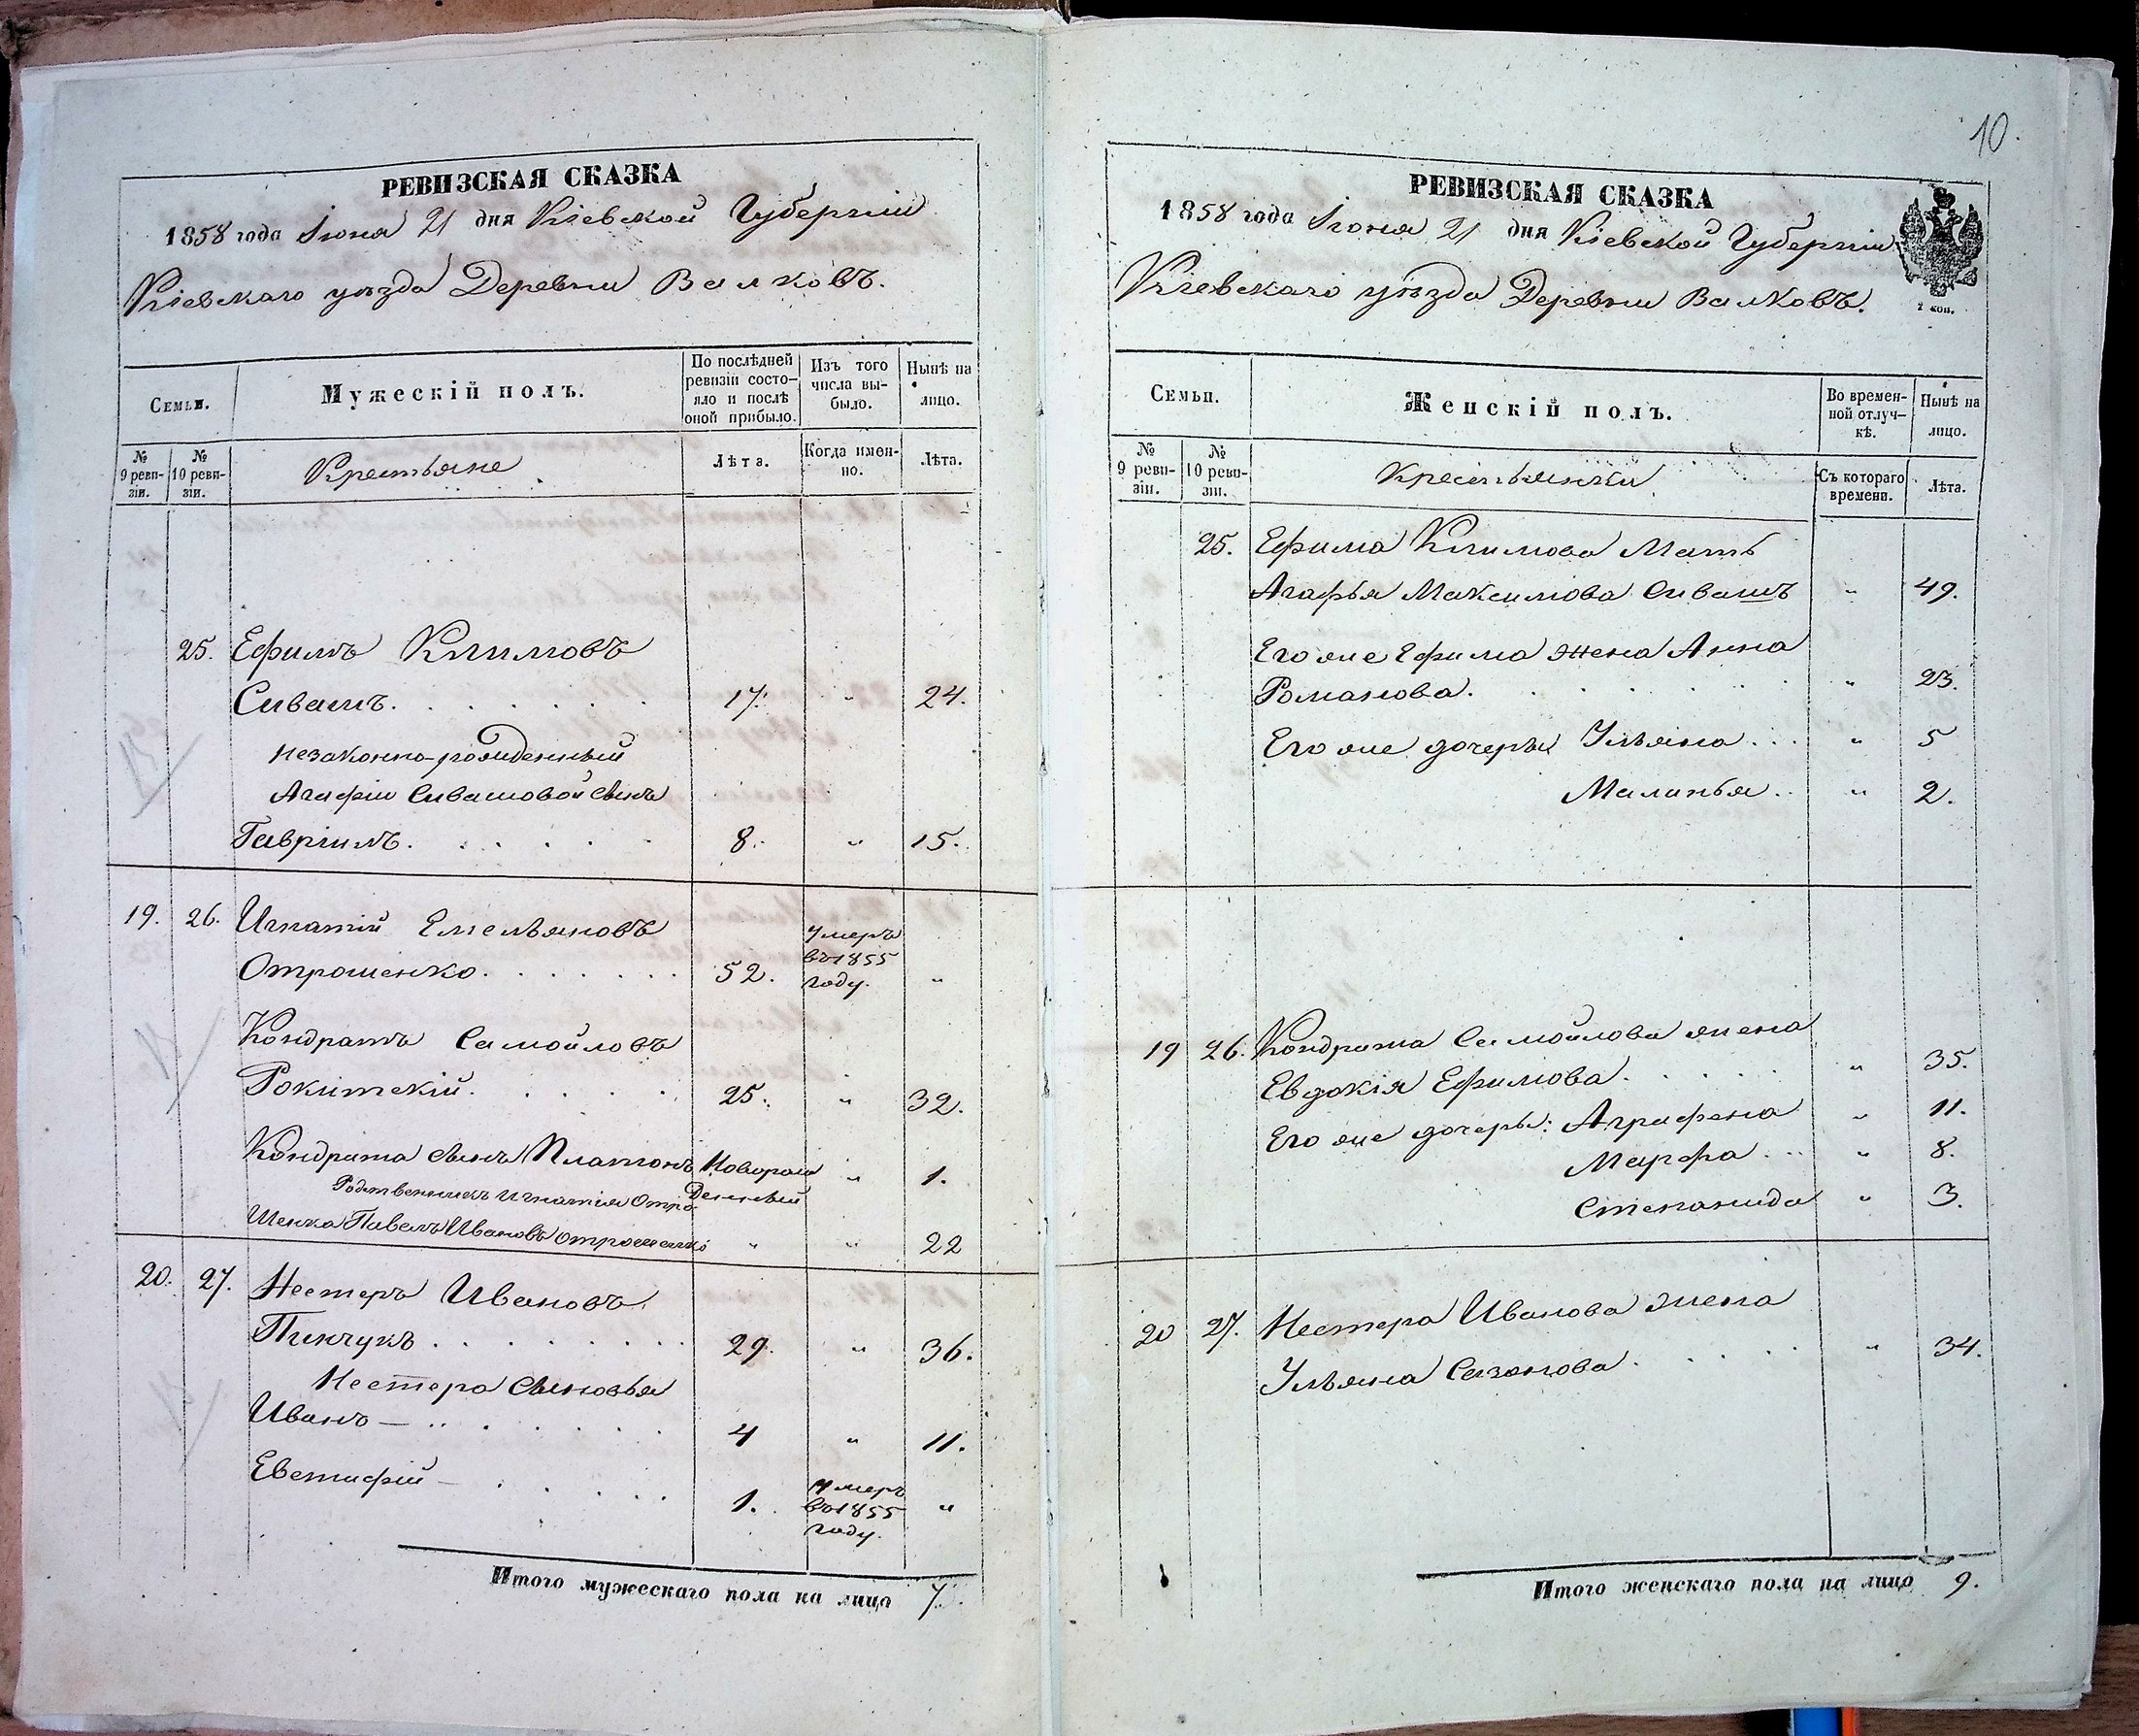 РЕВИЗСКАЯ СКАЗКА
1858 года Іюня 21 дня Кіевской Губерніи
Кіевскаго уѣзда Деревни Валковъ.
Семьи.
Мужескій полъ.
По послѣдней ревизіи состо-
яло и послѣ оной прибыло.
Изъ того числа вы-
было.
Нынѣ на лицо.
№ 9 реви-
зіи.
№ 10 реви-
зіи.
Крестьяне
Лѣта.
Когда имен-
но.
Лѣта.
25. Ефимъ Климовъ
Сивашъ. 17. " 24.
незаконно-рожденный
Агафіи Сивашовой сынъ
Гавріилъ. 8. " 15.
19. 26. Игнатій Емельяновъ
Отрошенко. 52. умеръ въ 1855 году. "
Кондратъ Самойловъ
Рокитскій. 25. " 32.
Кондрата сынъ Платонъ Новорож
денный " 1.
Родственникъ Игнатія Отро-
шенка Павелъ Ивановъ Отрошенко " " 22
20. 27. Нестеръ Ивановъ
Пинчукъ. 29. " 36.
Нестера сыновья
Иванъ — 4 " 11.
Евстафій — 1. умеръ въ 1855 году. "
Итого мужескаго пола на лицо 7.
10.
РЕВИЗСКАЯ СКАЗКА
1858 года Іюня 21 дня Кіевской Губерніи
Кіевскаго уѣзда Деревни Валковъ.
7 коп.
Семьи.
Женскій полъ.
Во времен-
ной отлуч-
кѣ.
Нынѣ на лицо.
№ 9 реви-
зіи.
№ 10 реви-
зіи.
Крестьянки
Съ котораго времени.
Лѣта.
25. Ефима Климова Мать
Агафья Максимова Сивашъ " 49.
Его же Ефима жена Анна
Романова. " 23.
Его же дочеры Ульяна " 5
Маланья " 2.
19 26. Кондрата Самойлова жена
Евдокія Ефимова. " 35.
Его же дочеры: Аграфена " 11.
Марфа " 8.
Степанида " 3.
20 27. Нестера Иванова жена
Ульяна Сазонова. " 34.
Итого женскаго пола на лицо 9.